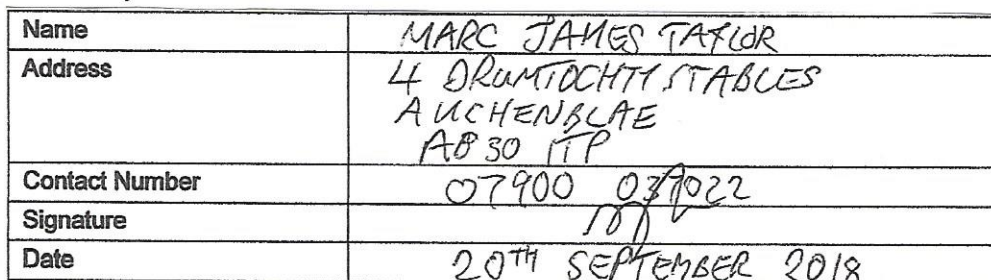 Name MARC JAMES TAYLOR
Address 4 DRUMTOCHTY STABLES
AUCHENBLAE
AB30 1TP
Contact Number 07900 037022
Signature
Date 20TH SEPTEMBER 2018